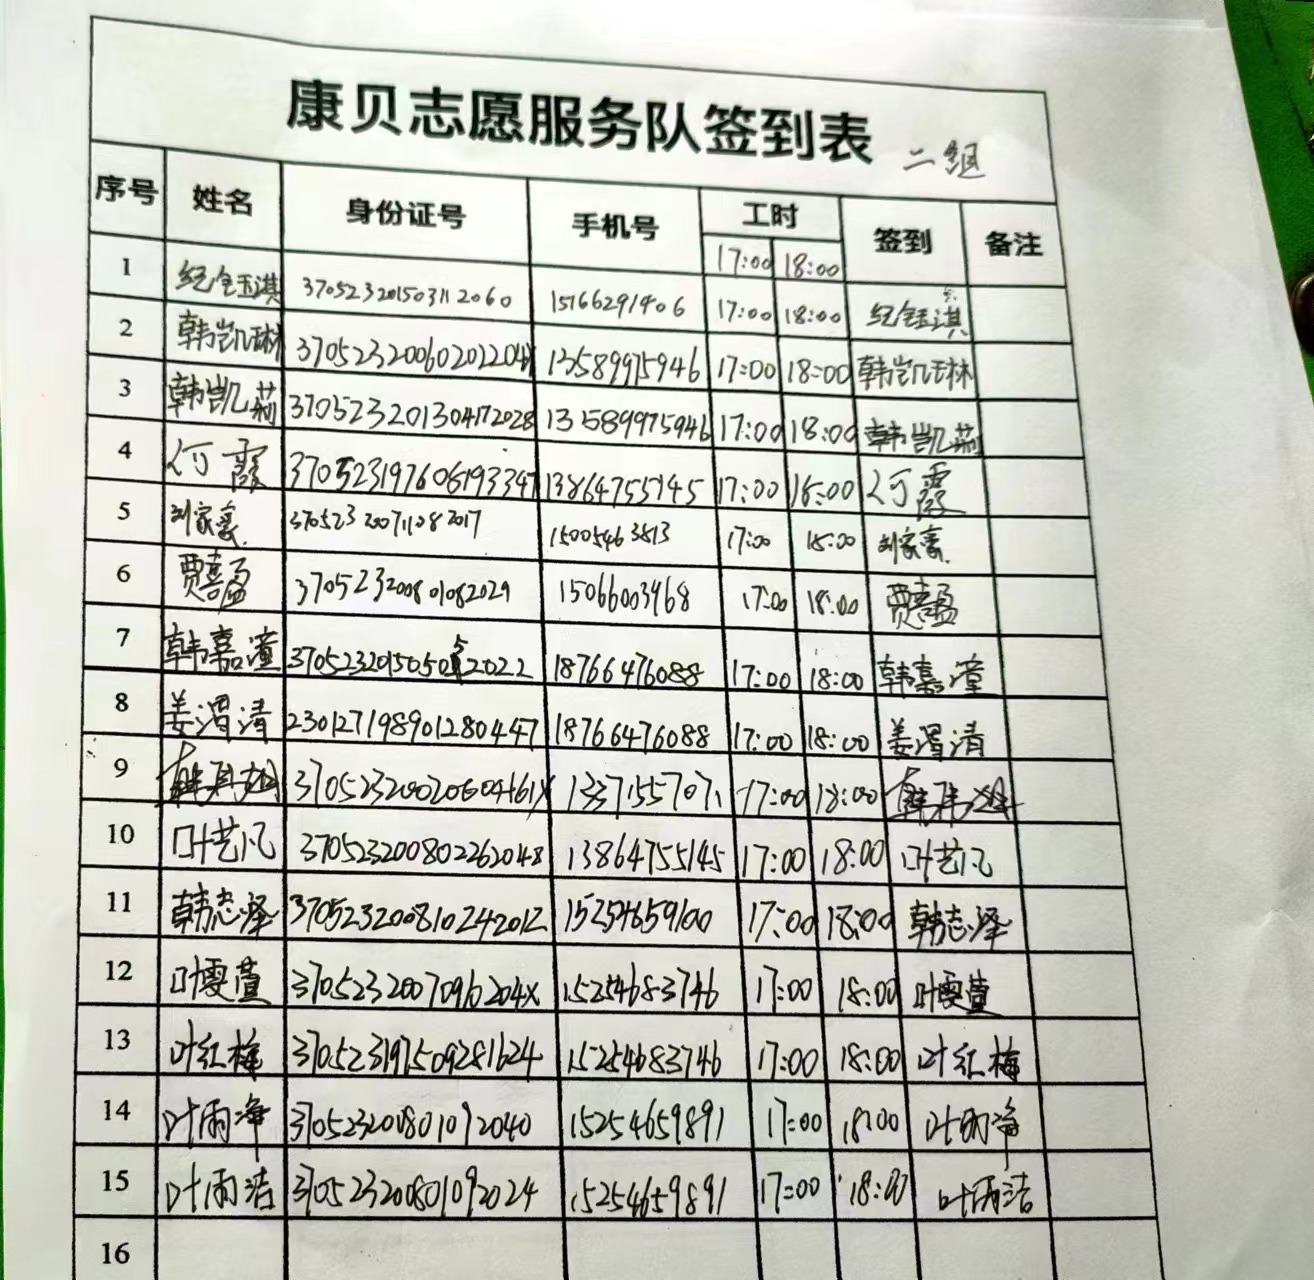 康贝志愿服务队签到表 二组
序号 姓名 身份证号 手机号 工时 签到 备注
17:00 18:00
1 纪钰淇 370523201503112060 15166291406 17:00 18:00 纪钰淇
2 韩凯琳 37052320060202204X 13589975946 17:00 18:00 韩凯琳
3 韩凯莉 370523201304172028 13589975946 17:00 18:00 韩凯莉
4 何霞 370523197606193347 13864755145 17:00 18:00 何霞
5 刘家豪 370523200711082017 15005463813 17:00 18:00 刘家豪
6 贾喜盈 370523200801082029 15066003968 17:00 18:00 贾喜盈
7 韩嘉潼 370523201505052022 18766476088 17:00 18:00 韩嘉潼
8 姜渭清 230127198901280447 18766476088 17:00 18:00 姜渭清
9 17:00 18:00
10 叶艺凡 370523200802262048 13864755145 17:00 18:00 叶艺凡
11 韩志泽 370523200810242012 15254659100 17:00 18:00 韩志泽
12 叶雯萱 37052320070916204X 15254683746 17:00 18:00 叶雯萱
13 叶红梅 370523197509281624 15254683746 17:00 18:00 叶红梅
14 叶雨净 370523200801092040 15254659891 17:00 18:00 叶雨净
15 叶雨洁 370523200801092024 15254659891 17:00 18:00 叶雨洁
16